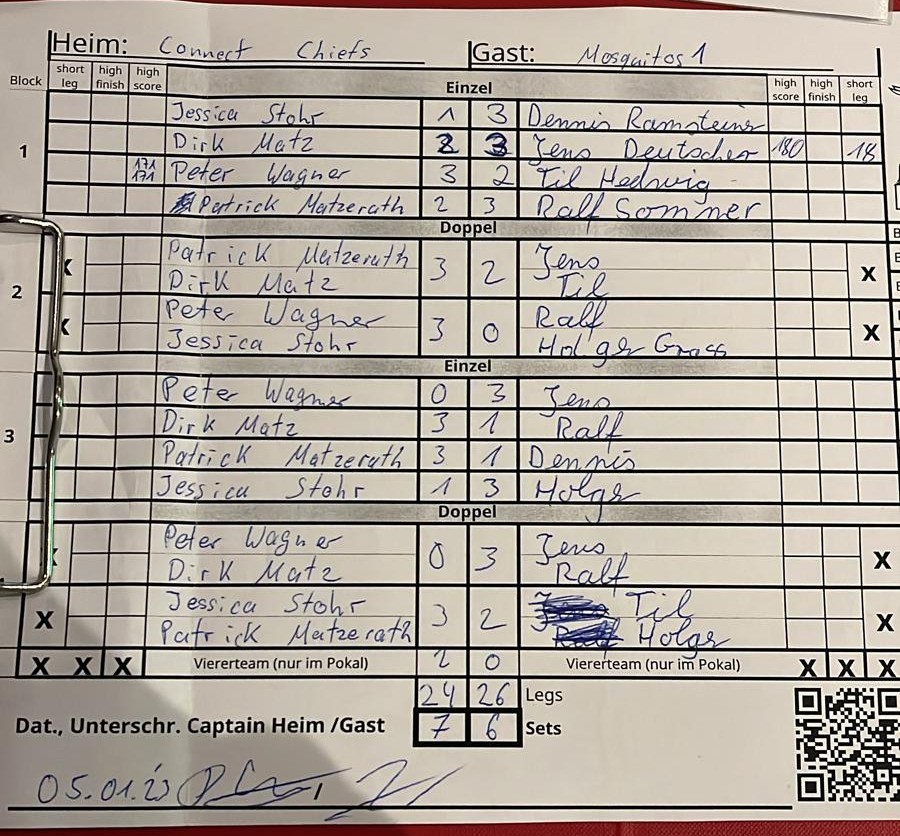 Heim: Connect Chiefs Gast: Mosquitos 1
Block short leg high finish high score Einzel high score high finish short leg
1
Jessica Stohr 1 3 Dennis Ramsteiner
Dirk Matz 2 3 Jens Deutscher 180 18
171 171 Peter Wagner 3 2 Til Hedwig
Patrick Matzerath 2 3 Ralf Sommer
Doppel
2
Patrick Matzerath 3 2 Jens X
Dirk Matz Til
Peter Wagner 3 0 Ralf X
Jessica Stohr Holger Grass
Einzel
3
Peter Wagner 0 3 Jens
Dirk Matz 3 1 Ralf
Patrick Matzerath 3 1 Dennis
Jessica Stohr 1 3 Holger
Doppel
Peter Wagner 0 3 Jens X
Dirk Matz Ralf
X Jessica Stohr 3 2 Til X
Patrick Matzerath Holger
X X X Viererteam (nur im Pokal) 2 0 Viererteam (nur im Pokal) X X X
24 26 Legs
Dat., Unterschr. Captain Heim /Gast 7 6 Sets
05.01.23